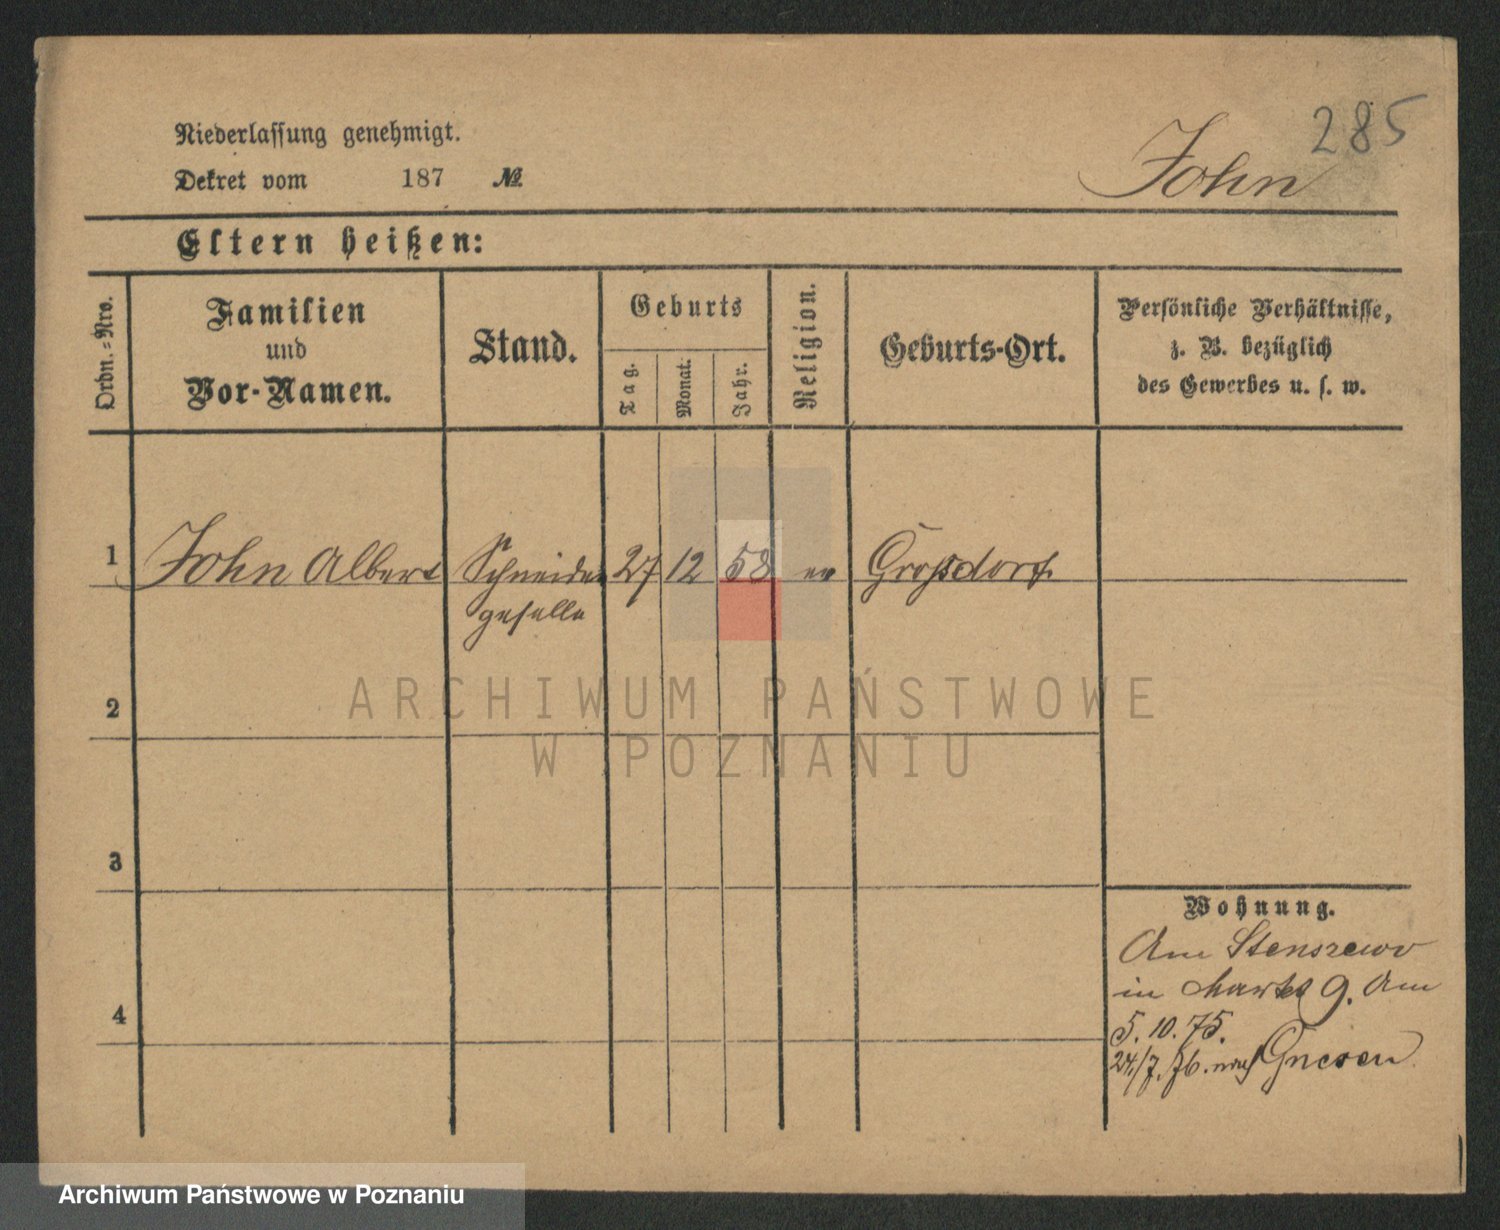 285
Niederlassung genehmigt.
John
Dekret vom 187 №
Eltern heißen:
Ordn.-Nro.
Familien
und
Vor-Namen.
Stand.
Geburts
Tag.
Monat.
Jahr.
Religion.
Geburts-Ort.
Persönliche Verhältnisse,
z. B. bezüglich
des Gewerbes u. s. w.
1 John Albert Schneider 27 12 58 ev Großdorf
geselle
ARCHIWUM PAŃSTWOWE
W POZNANIU
2
3
4
Wohnung.
Stenszewo
in Markt 9. Am
5. 10. 75.
24/7. 76. nach Gnesen
Archiwum Państwowe w Poznaniu